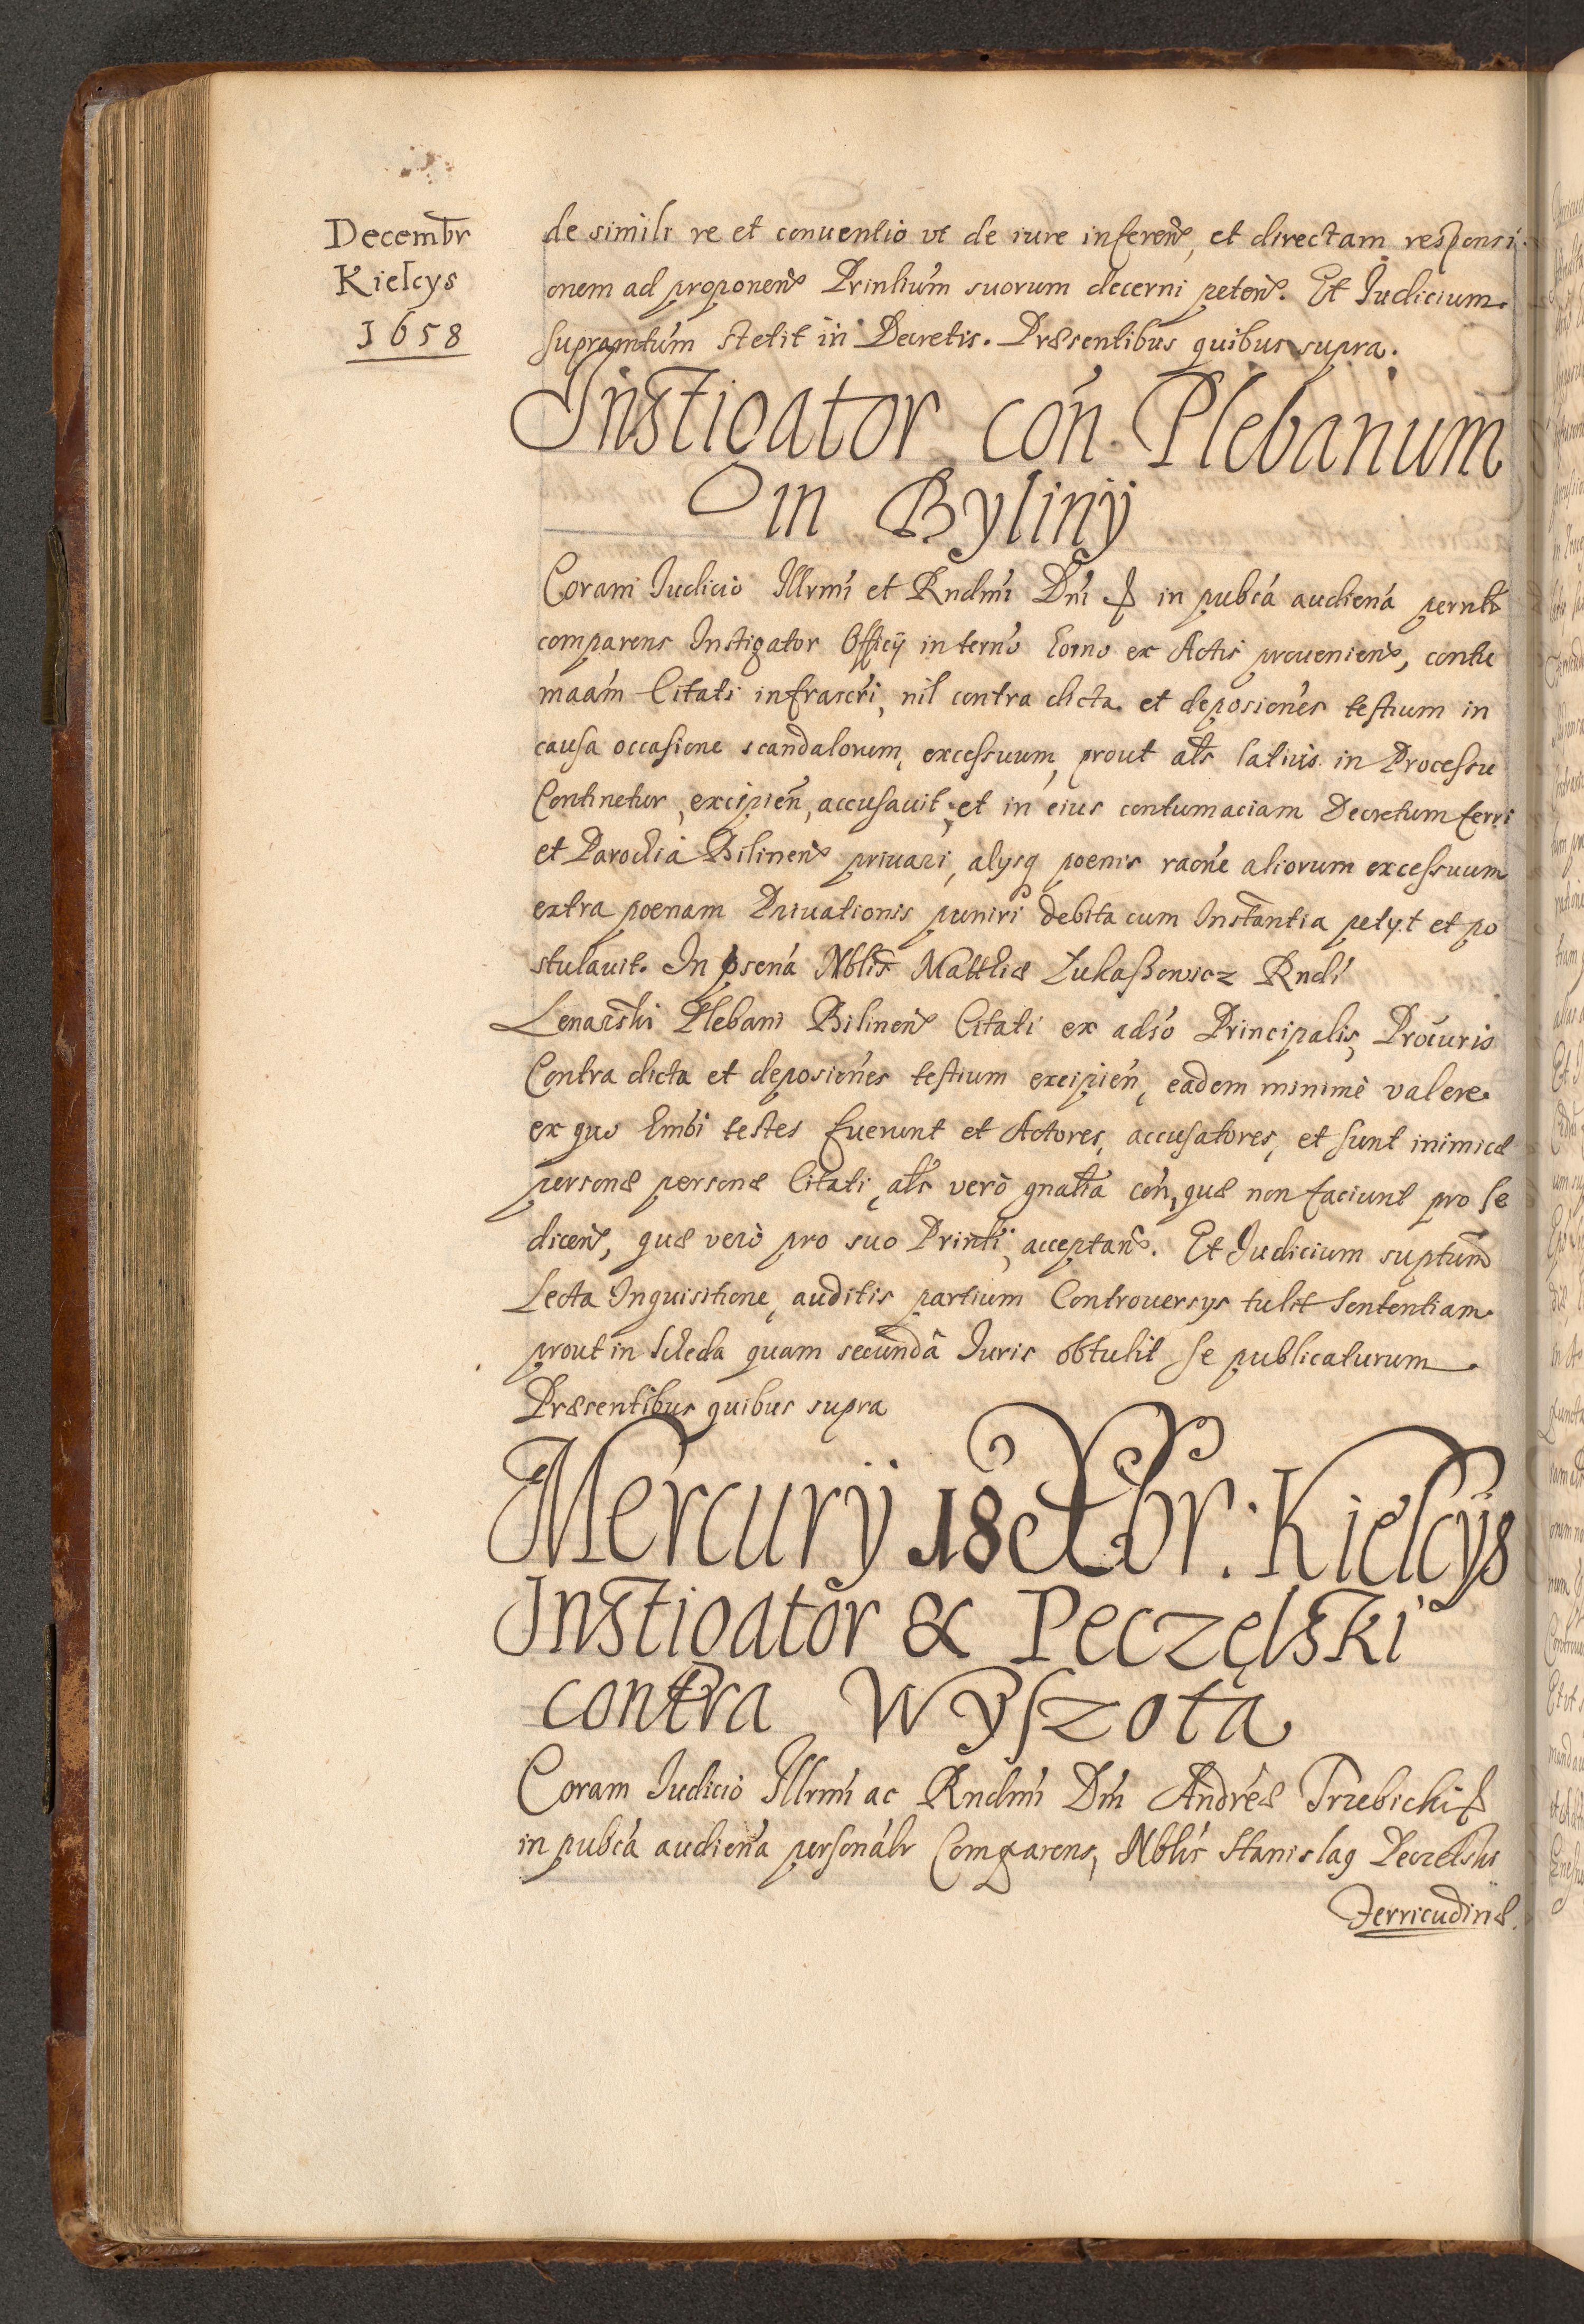 Decembr
Kielcys
1658
de simili re et conuentio vt de iure inferen, et directam responsi
onem ad proponen Printium suorum decerni peten. Et Iudicium
supramtum stetit in Decretis. Præsentibus quibus supra.
Instigator con Plebanum
in Bylinÿ
Coram Iudicio Illrmi et Rndmi Dni & in pubca audiena pernlr
comparens Instigator Officÿ in termo hoino ex Actis prouenien, contu
maam Citati infrascri, nil contra dicta et deposiones testium in
causa occasione scandalorum, excessuum, prout als latius in Processu
Continetur, excipien, accusauit, et in eius contumaciam Decretum ferri
et Parochia Bilinen priuari, alysq poenis raone aliorum excessuum
extra poenam Priuationis puniri debita cum Instantia petyt et po
stulauit. In psena Nblis Matthiæ Lukaszowicz Rndi
Lenarski Plebani Bilinen Citati ex adso Principalis, Procuris
Contra dicta et deposiones testium excipien, eadem minimè valere
ex quo Embi testes fuerunt et Actores, accusatores, et sunt inimicæ
personæ personæ Citati, als verò gnalia con, quæ non faciunt pro se
dicen, quæ verò pro suo Printi, acceptan. Et Iudicium suptum
Lecta Inquisitione, auditis partium Controuersys tulit sententiam
prout in scheda quam secunda Iuris obtulit se publicaturum
Præsentibus quibus supra
Mercurÿ 18 Xbr. Kielcÿs
Instigator & Peczęlski
contra Wyszota
Coram Iudicio Illrmi ac Rndmi Dni Andreæ Trzebicki &
in pubca audiena personalr Comparens, Nblis Stanislaq Peczelski
Ferricudinæ.